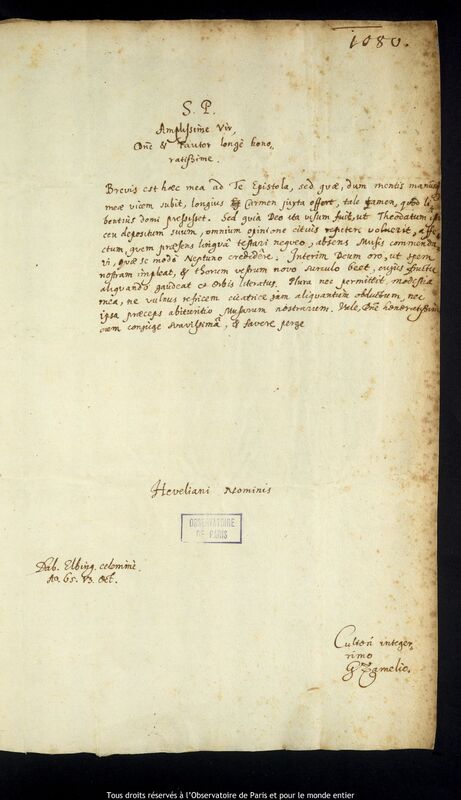 1080.
S. P.
Amplissime Vir,
Dñe & Fautor longè hono,
ratissime.
Brevis est hæc mea ad Te Epistola, sed quæ, dum mentis manus
meæ vicem subit, longius Carmen juxta offert, tale tamen, quod li
bentius domi pressisset. Sed quia Deo ita visum fuit, ut Theodatum
ceu depositum suum, omnium opinione citius repetere voluerit, affe
ctum, quem præsens linguâ testari nequeo, absens Musis commenda
vi, quæ se modò Neptuno credidere. Interim Deum oro, ut spem
nostram impleat, & thorum vestrum novo surculo beet, cujus fructu
aliquando gaudeat et Orbis literatus. Plura nec permittit modestia
mea, ne vulnus resicem cicatrice jam aliquantum obductum, nec
ipsa præceps abituritio Musarum nostrarum. Vale, Dñe honoratissime
cum conjuge suavissimâ, & favere perge
Heveliani Nominis
OBSERVATOIRE
DE PARIS
Dab. Elbing. celerrimè.
Ao. 65. Oct.
Cultori integer,
rimo
G Zamelio.
Tous droits réservés à l'Observatoire de Paris et pour le monde entier